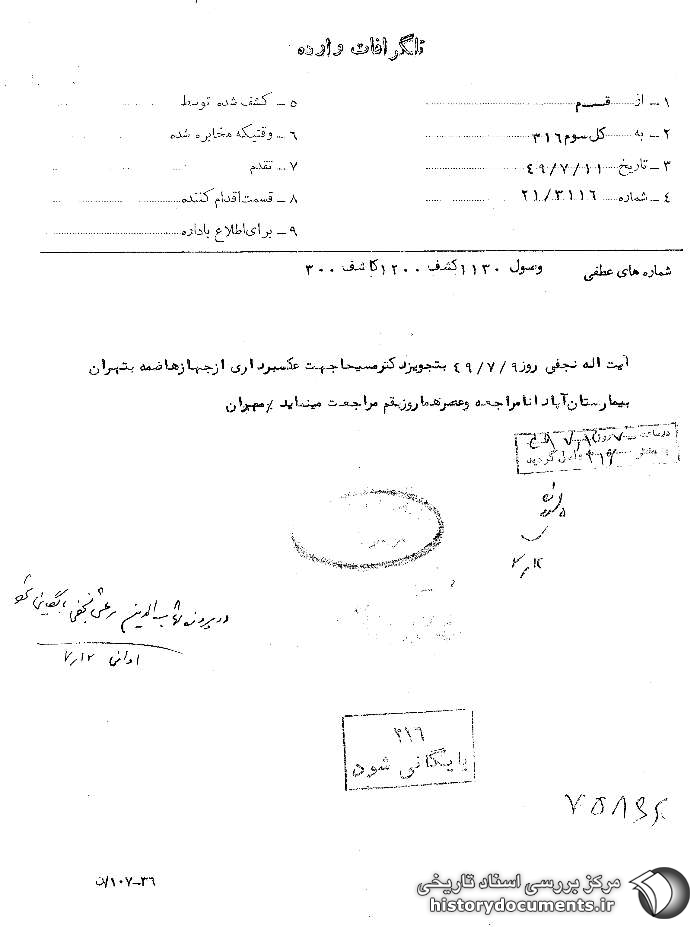 تلگرافات وارده
۱ـ از قم
۲ـ به کل سوم ۳۱۶
۳ـ تاریخ ۴۹/۷/۱۱
۴ـ شماره ۲۱/۳۱۱۶
۵ـ کشف شده توسط
۶ـ وقتیکه مخابره شده
۷ـ تقدم
۸ـ قسمت اقدام کننده
۹ـ برای اطلاع باداره
شماره های عطفی وصول ۱۱۳۰ کشف ۱۲۰۰ کاشف ۳۰۰
آیت اله نجفی روز ۴۹/۷/۹ بتجویز دکتر مسیحا جهت عکسبرداری از جهاز هاضمه بتهران
بیمارستان آپادانا مراجعه و عصر هما روز بقم مراجعت مینماید ٪ مهران
در پرونده شهاب الدین مرعشی نجفی بایگانی شود
۷/۱۲
۳۱۶
بایگانی شود
۳۶-۱۰۷/ن
مرکز بررسی اسناد تاریخی
historydocuments.ir